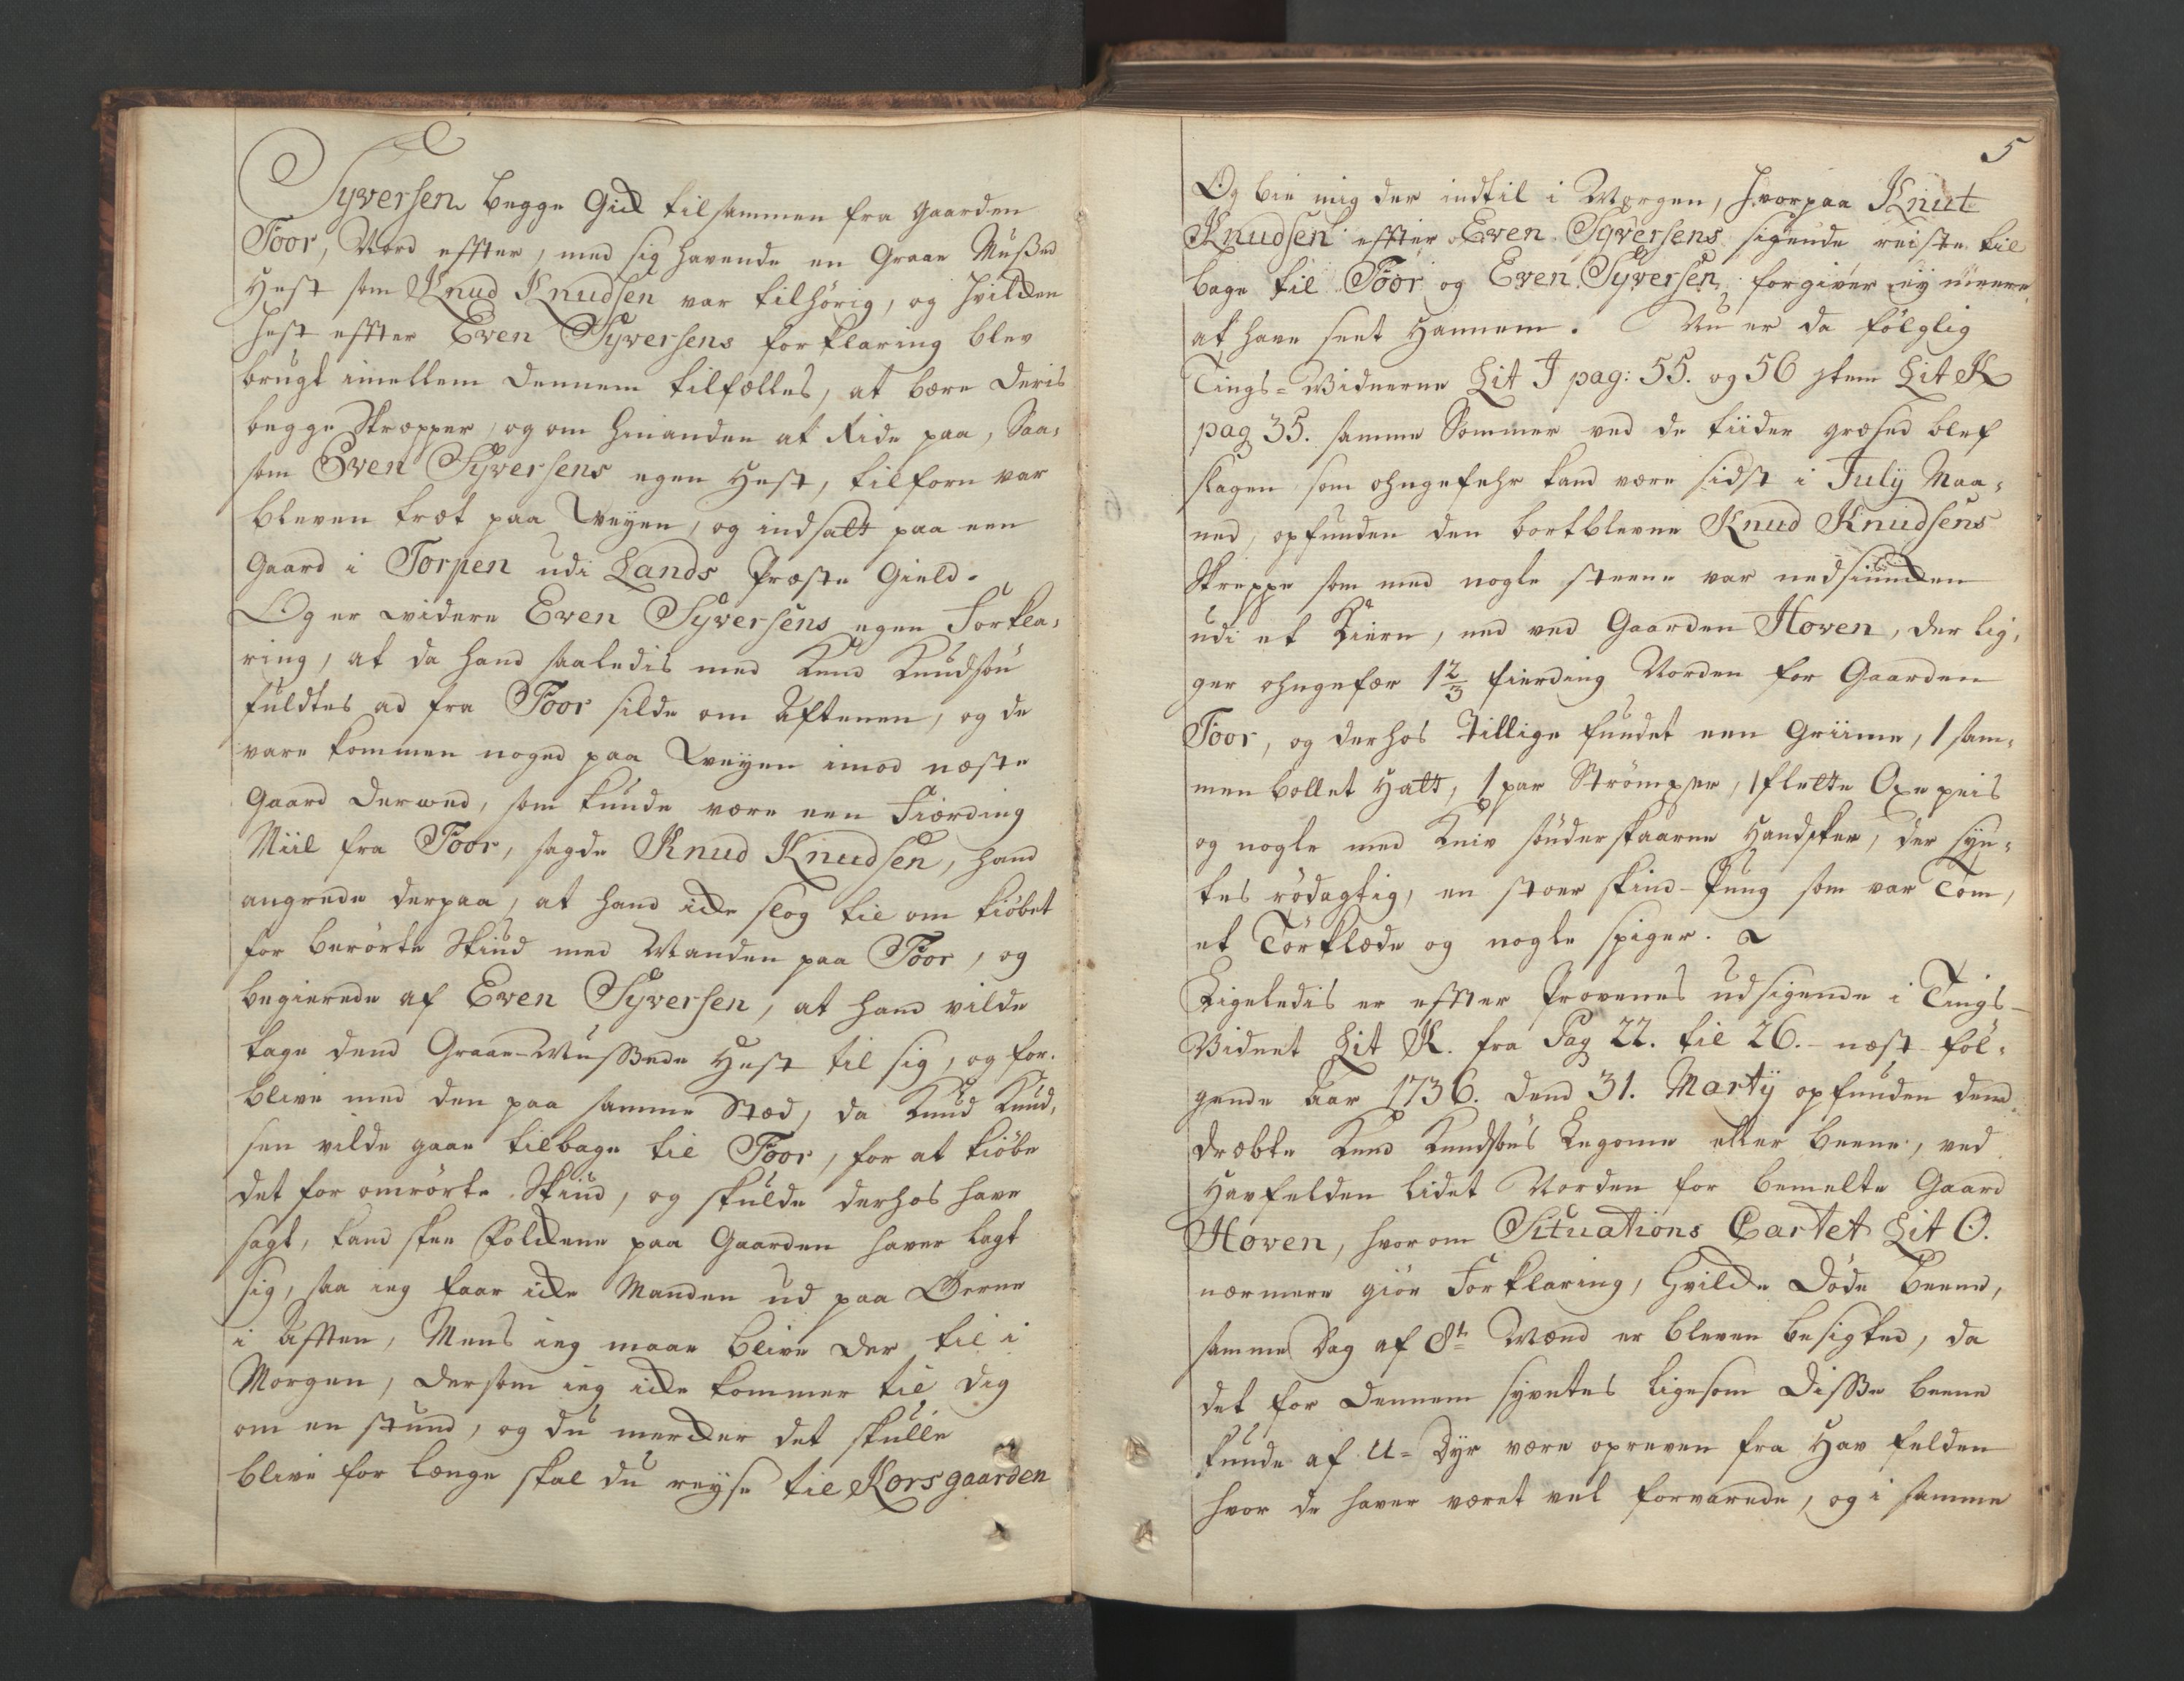 Syversen begge Gick tilsammen fra gaarden
Foor, Nord effter, med sig havende en Graae Mußed
Hest som Knud Knudsen var tilhörig, og hvilcken
hest effter Even Syversens forklaring blev
brugt imellem dennem tilfælles, at bære deris
begge Skræpper, og om hinanden at Ride paa, Saa-
som Even Syversens egen Hest, tilforn var
bleven træt paa Veyen, og indsatt paa een
Gaard i Torpen udi Lands Præste Gield.
Og er widere Even Syversens egen Forkla-
ring, at da hand saaledis med Knud Knudsøn
fuldtes ad fra Foor silde om Aftenen, og de
vare kommen noged paa Veyen imod næste
Gaard derwed, som kunde være een Fiærding
Miil fra Foor, sagde Knud Knudsen, hand
angrede derpaa, at hand icke slog til om kiöbet
for berörte Skind med Manden paa Foor, og
begierede af Even Syversen, at hand vilde
tage dend Graae-Mussede Hest til sig, og for-
blive med den paa samme Stæd, da Knud Knud-
sen vilde gaae tilbage til Foor, for at kiöbe
det for omrörte Skind, og skulde derhos have
sagt, kand skee Folckene paa Gaarden haver lagt
sig, saa ieg faar icke Manden ud paa
i Afften, Mens ieg maae blive der til i
Morgen, dersom ieg icke kommer til dig
om en stund, og du mercker det skulle
blive for længe skal du reyse til Korsgaarden
5
Og bie mig der indtil i Morgen, hvorpaa Knut
Knudsen effter Even Syversens sigende reiste til
bage til Foor og Even Syversen forgiver ey meere
at have seet Hannem. Nu er da fölglig
Tings-Vidnerne Lit I pag: 55. og 56 item Lit K
pag 35. samme Sommer ved de tiider græsed blef
slagen som ohngefehr kand være sidst i July Maa-
ned, opfunden den bortblevne Knud Knudsens
Skreppe som med nogle steene var nedsiuncken
udi et Kiern, ned ved Gaarden Hoven, der lig-
ger ohngefær 1 2/3 fierding Norden for Gaarden
Foor, og derhos tillige fundet een Griime, 1 sam-
men bollet Hatt, 1 par Strömper, 1 flette Oxe peis
og nogle med Kniv sönderskaarne Handsker, der syn-
tes rödagtig, en stoer skind-Pung som var Tom,
et Törklæde og nogle spiger.
Ligeledis er effter Provenes udsigende i Tings-
Vidnet Lit K. fra Pag 22. til 26. næst föl-
gende Aar 1736. dend 31. Martij opfunden dend
dræbte Knud Knudsøns Legome eller beene, ved
Havfelden lidet Norden for bemelte Gaard
Hoven, hvorom Situations Cartet Lit O.
nærmere giör Forklaring, hvilcke döde beene,
samme Dag af 8te Mænd er bleven besigted, da
det for dennem syntes ligesom disse beene
kunde af U-Dyr være opreven fra Hav felden
hvor de haver været vel forvarede, og i samme